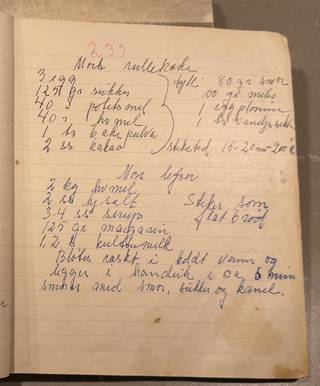 233
Mørk rullekake
3 egg
125 gr sukker
40 " potetmel
40 " hv mel
1 ts bakepulver
2 ss kakao
fyll: 80 gr smør
100 gr melis
1 eggeplomme
1 ts vaniljesukk
Steketid 15-20 min - 200 c
Mors lefser
2 kg hv mel
2 ss hj salt
3-4 ss sirup
125 gr margarin
1,2 l kulturmelk
Stekes som
flatbrød
Bløtes raskt i koldt vann og
legges i handuk i ca 5 min
smøres med smør, sukker og kanel.